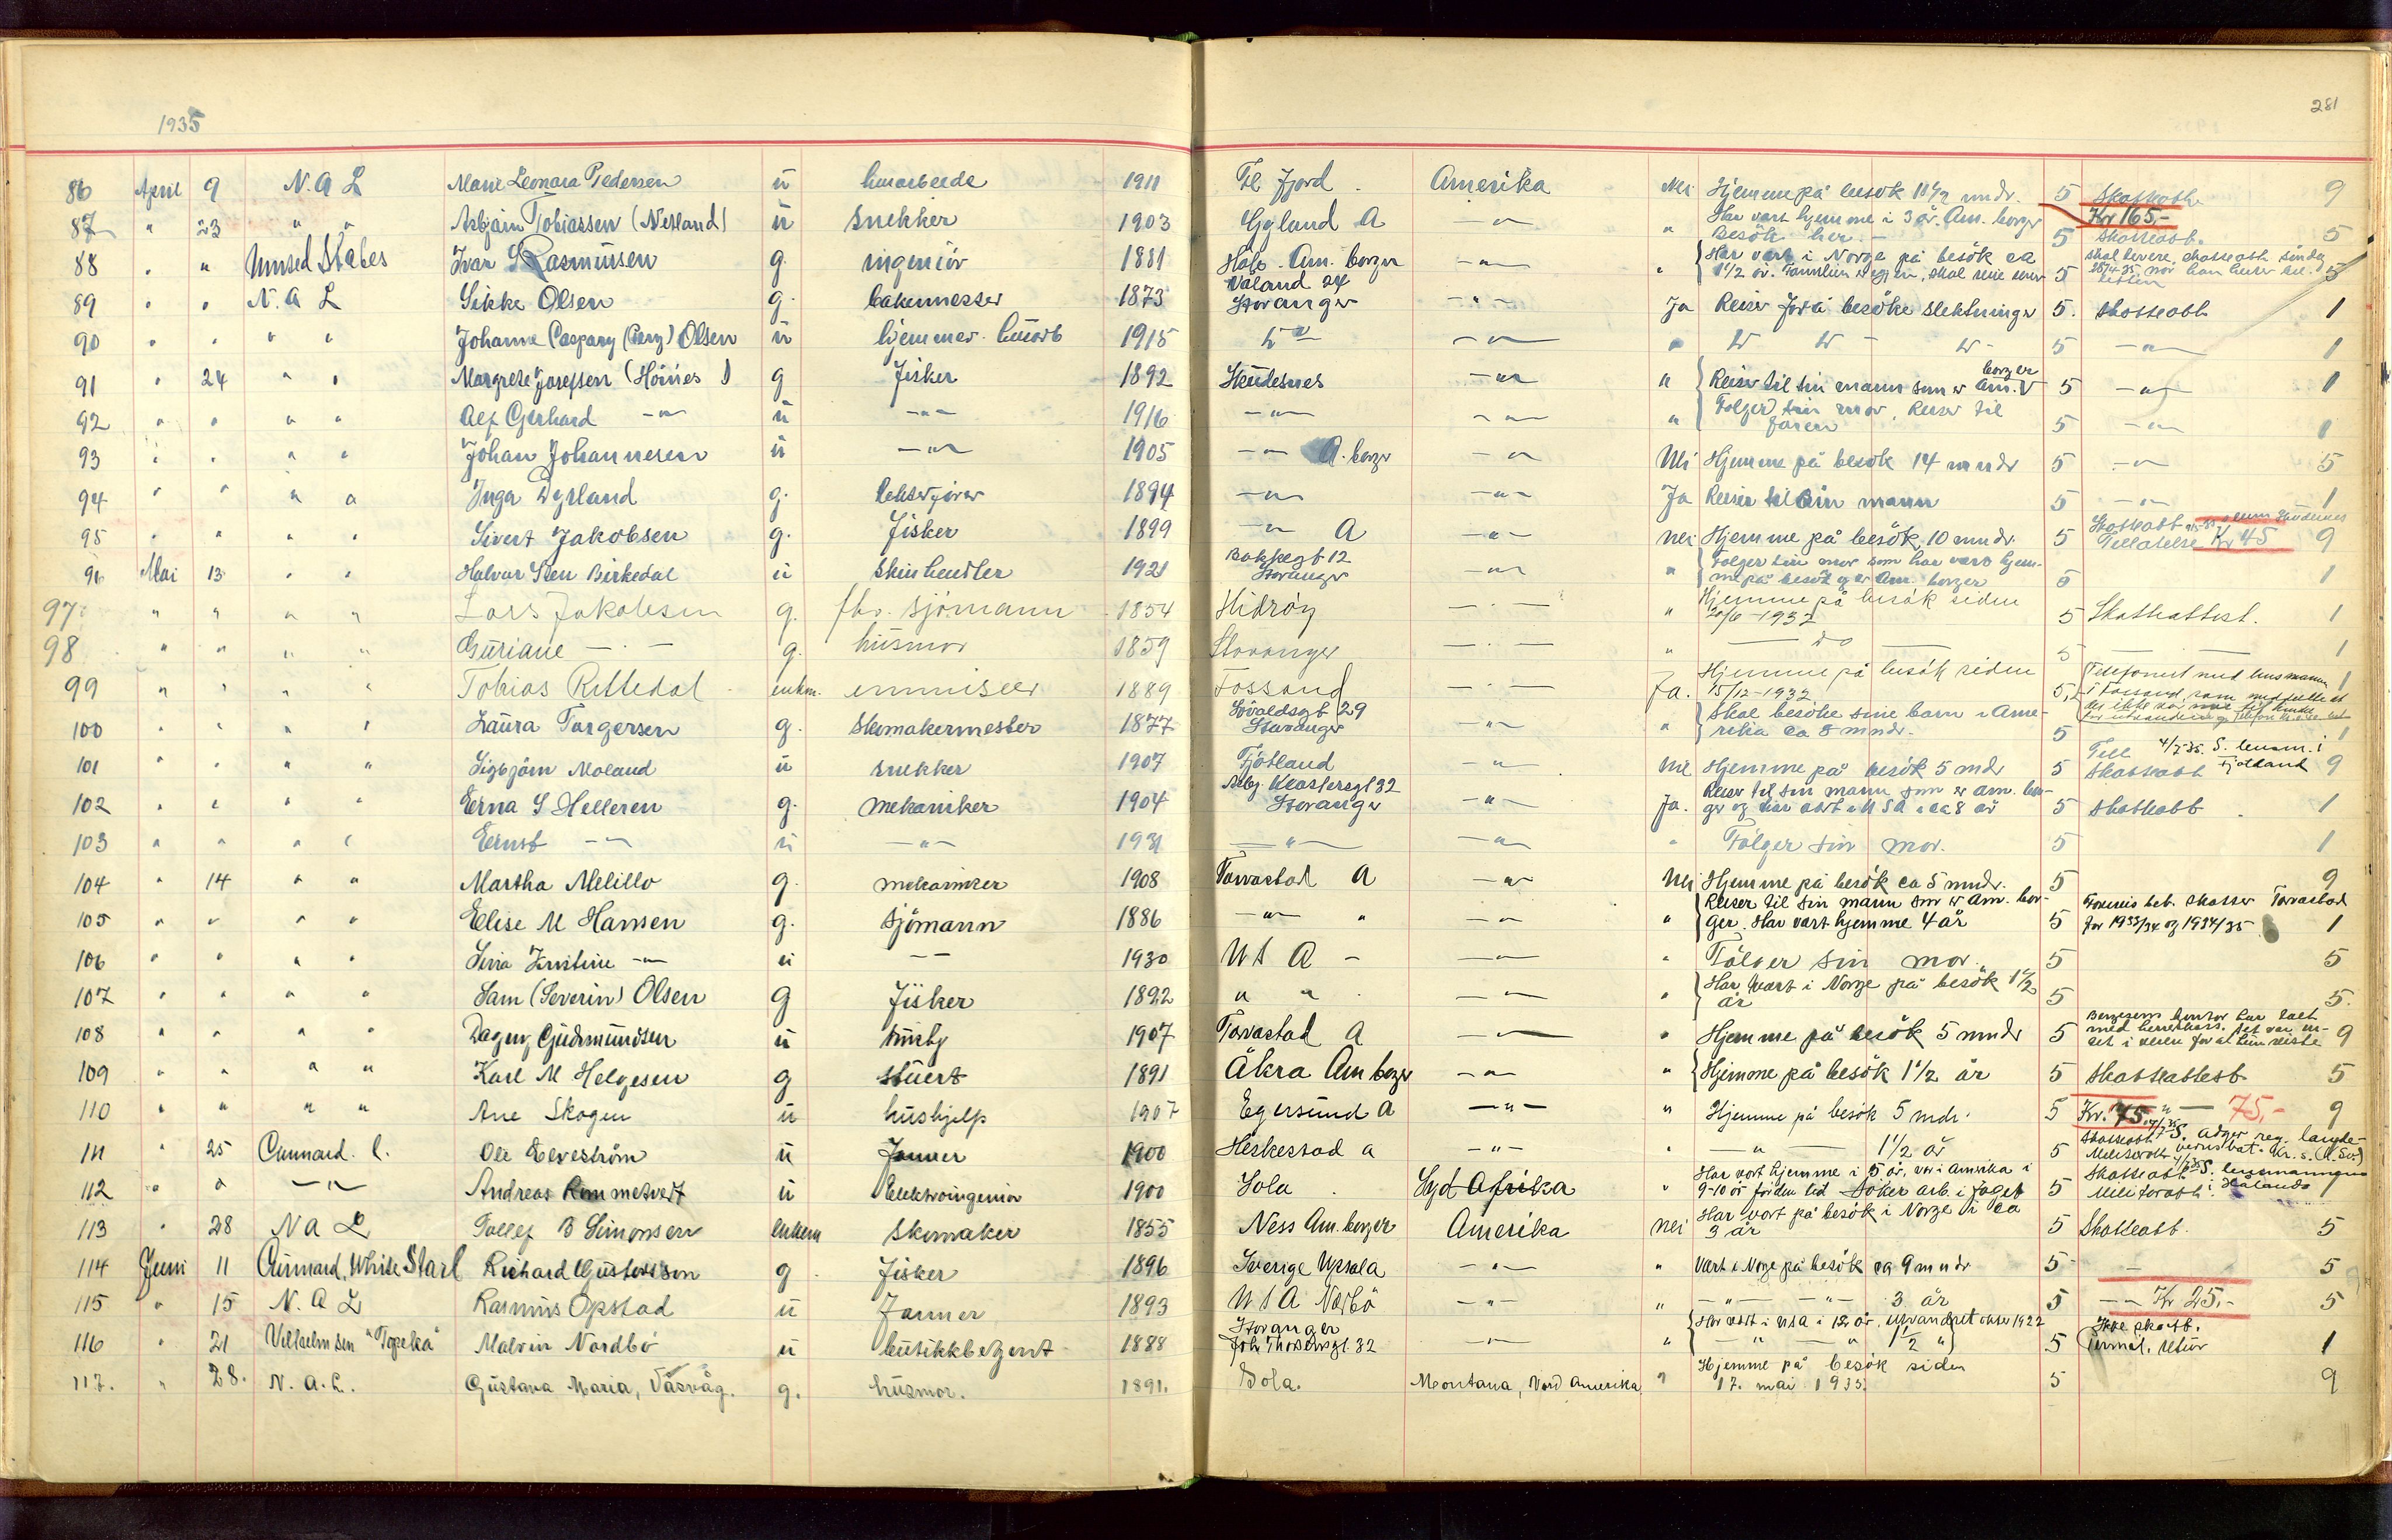 1935
281
86 April 9 N. A L Marie Leonara Pedersen u husarbeide 1911 Fl. fjord Amerika Nei Hjemme på besök 11 1/2 mndr. 5 Skatteatt. 9
87 " 23 " " Asbjörn Tobiassen (Netland) u Snekker 1903 Gyland A — " — " Har vært hjemme i 3 år. Am. borger Besök her. — 5 Kr 165,- Skatteatt. 5
88 " " United States Ivar S Rasmussen g. ingeniör 1881 Hafr. Am. borger — " — " Har vært i Norge på besök ca 1 1/2 år. 5 skal levere skatteatt. 5
89 " " N. A L Sikke Olsen g. bakermester 1873 Våland 24 Stavanger — " — Ja Reiser for å besöke slektninger 5. skatteatt 1
90 " " " " Johanne Caspary (Berg) Olsen u hjemmev. husarb 1915 — " — " 5 — " — 1
91 " 24 " " Margrete Josefsen (Höines) g fisker 1892 Skudesnes — " — " Reiser til sin mann som er Am. borger 5 — " — 1
92 " " " " Alf Gerhard — " — u — " — 1916 — " — — " — " Fölger sin mor. Reiser til faren 5 — " — 1
93 " " " " Johan Johannesen u — " — 1905 — " — A. borger — " — Nei Hjemme på besök 14 mndr 5 — " — 5
94 " " " " Inga Dyrland g. 1894 — " — — " — Ja Reiser til sin mann 5 — " — 1
95 " " " " Sivert Jakobsen g. fisker 1899 — " — A — " — Nei Hjemme på besök 10 mndr. 5 Skatteatt Tillatelse Kr 45 9
96 Mai 13 " " Halvar Sten Birkedal u Skinhendler 1921 Bakkegt 12 Stavanger — " — " Fölger sin mor som har vært hjemme på besök og er Am. borger 5 1
97. " " " " Lars Jakobsen g. fhv. sjömann 1854 Hidröy — " — " Hjemme på besök siden 20/6-1932 5 Skatteattest. 1
98 " " " " Guriane — " — g. husmor 1859 Stavanger — " — " — do — 5 — — 1
99 " " " " Tobias Rettedal enkm. emissær 1889 Fossand — " — Ja. Hjemme på besök siden 15/12-1932 5,- Telefonert med lensmannen i Fossand, som meddelte at 1
100 " " " " Laura Torgersen g. Skomakermester 1877 Lövaldsgt 29 Stavanger — " — " Skal besöke sine barn i Amerika ca 8 mndr. 5 1
101 " " " " Sigbjörn Moland u snekker 1907 Fjotland — " — Nei Hjemme på besök 5 mdr 5 Till 4/7-35. S. lensm. i Fjotland Skatteatt 9
102 " " " " Erna S Helleren g. mekaniker 1904 Klostergt 32 Stavanger — " — Ja. Reiser til sin mann som er am. borger og har vært i U S A i ca 8 år 5 skatteatt 1
103 " " " " Ernst — " — u — " — 1931 — " — — " — " Fölger sin mor. 5 1
104 " 14 " " Martha Melillo g. mekaniker 1908 Torvastad A — " — Nei Hjemme på besök ca 5 mndr. 5 9
105 " " " " Elise M Hansen g. Sjömann 1886 — " — " — " — " Reiser til sin mann som er Am. borger. Har vært hjemme 4 år 5 bet. skatter Torvastad for 1933/34 og 1934/35 1
106 " " " " Kristine — " — u — — 1930 U S A — — " — " Fölger sin mor. 5 5
107 " " " " Sam (Severin) Olsen g fisker 1892 " " — " — " Har vært i Norge på besök 1 1/2 år 5 5.
108 " " " " Dagny Gudmundsen u 1907 Torvastad A — " — " Hjemme på besök 5 mndr 5 Bergesens kontor har talt med herredskass. 9
109 " " " " Karl M Helgesen g stuert 1891 Åkra Am borger — " — " Hjemme på besök 1 1/2 år 5 skatteattest 5
110 " " " " Ane Skogen u hushjelp 1907 Egersund A — " — " Hjemme på besök 5 mdr. 5 Kr. 75. — " — 75,- 9
111 " 25 Cunnard. l. Ole Leveström u Farmer 1900 Heskestad a — " — " — " — 1 1/2 år 5 Skatteatt
112 " " — " — Andreas Rommetvedt u Elektroingeniör 1900 Sola Syd Afrika " Har vært hjemme i 5 år, var i Amerika i 9-10 år för den tid Söker arb. i faget 5 Skatteatt S. lensmannen i Håland 1
113 " 28 N A L Tollef B Simonsen enkem Skomaker 1855 Ness Am. borger Amerika Nei Har vært på besök i Norge i ca 3 år 5 Skatteatt. 5
114 Juni 11 Cunnard, White Starl Richard Gustavsson g. fisker 1896 Sverige Upsala — " — " Vært i Norge på besök ca 9 mndr 5 — 5
115 " 15 N. A L Rasmus Opstad u Farmer 1893 U S A Nærbö — " — " — " — — " — 3 år 5 — — Kr 25.- 5
116 " 21 Vilhelmsen "Topeka" Malvin Nordbö u butikkbetjent 1888 Stavanger Joh. Thorsensgt. 32 — " — " Har vært i USA i 12 år. 1922 — " — — " — 1 1/2 " 5 Ikke skatt. retur 1
117. " 28. N. A. L. Gustava Maria, Våsvåg. g. husmor. 1891. Sola. Montana, Nord Amerika " Hjemme på besök siden 17. mai 1933. 5 9